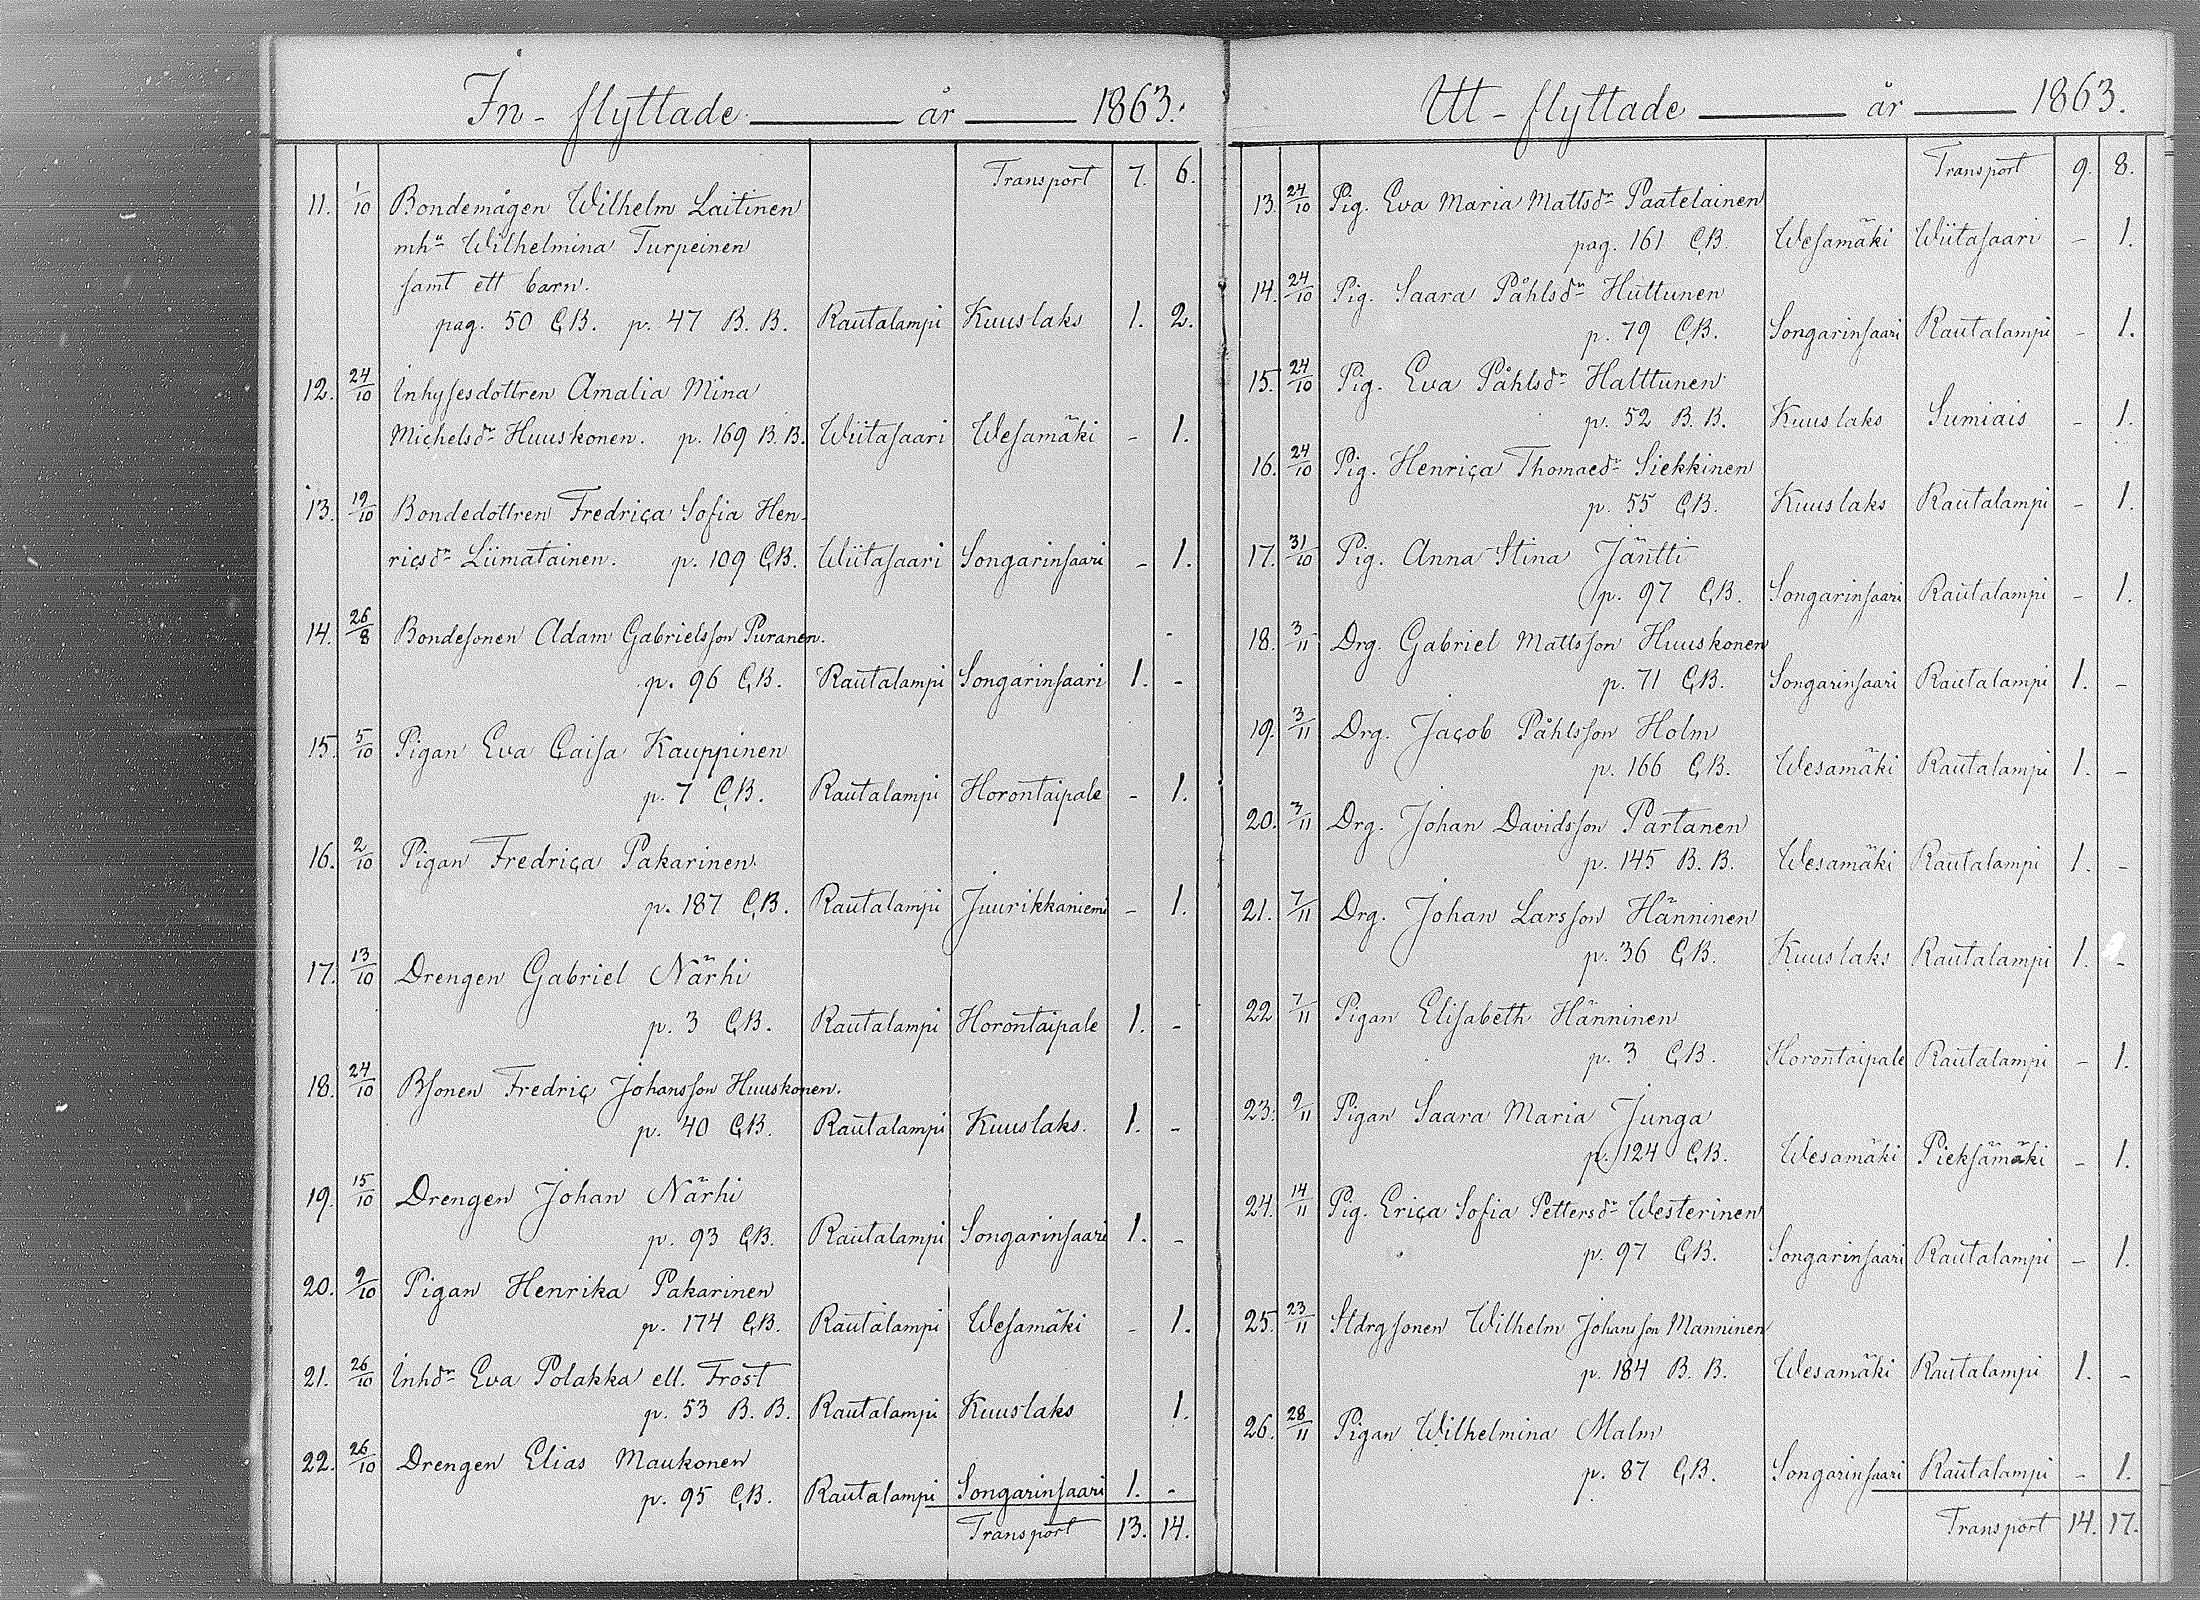 In-flyttade år 1863.
Transport 7. 6.
11. 1/10 Bondemågen Wilhelm Laitinen
mhu Wilhelmina Turpeinen
samt ett barn.
pag. 50 C.B. p. 47 B.B. Rautalampi Kuuslaks 1. 2.
12. 24/10 Inhysesdottren Amalia Mina
Michelsdr Huuskonen. p. 169 B.B. Wiitasaari Wesamäki - 1.
13. 19/10 Bondedottren Fredrica Sofia Hen-
ricsdr Liimatainen. p. 109 C.B. Wiitasaari Songarinsaari - 1.
14. 26/8 Bondesonen Adam Gabrielsson Puranen.
p. 96 C.B. Rautalampi Songarinsaari 1. -
15. 5/10 Pigan Eva Caisa Kauppinen
p. 7 C.B. Rautalampi Horontaipale - 1.
16. 2/10 Pigan Fredrica Pakarinen
p. 187 C.B. Rautalampi Juurikkaniemi - 1.
17. 13/10 Drengen Gabriel Närhi
p. 3 C.B. Rautalampi Horontaipale 1. -
18. 24/10 Bsonen Fredric Johansson Huuskonen.
p. 40 C.B. Rautalampi Kuuslaks. 1. -
19. 15/10 Drengen Johan Närhi
p. 93 C.B. Rautalampi Songarinsaari 1. -
20. 9/10 Pigan Henrika Pakarinen
p. 174 C.B. Rautalampi Wesamäki - 1.
21. 26/10 Inhdr Eva Polakka ell. Frost
p. 53 B.B. Rautalampi Kuuslaks 1.
22. 26/10 Drengen Elias Maukonen
p. 95 C.B. Rautalampi Songarinsaari 1. -
Transport 13. 14.
Utt-flyttade år 1863.
Transport 9. 8.
13. 24/10 Pig. Eva Maria Mattsdr Paatelainen
pag. 161 C.B. Wesamäki Wiitasaari - 1.
14. 24/10 Pig. Saara Påhlsdr Huttunen
p. 79 C.B. Songarinsaari Rautalampi - 1.
15. 24/10 Pig. Eva Påhlsdr Halttunen
p. 52 B.B. Kuuslaks Sumiais - 1.
16. 24/10 Pig. Henrica Thomaedr Siekkinen
p. 55 C.B. Kuuslaks Rautalampi - 1.
17. 31/10 Pig. Anna Stina Jäntti
p. 97 C.B. Songarinsaari Rautalampi - 1.
18. 3/11 Drg. Gabriel Mattsson Huuskonen
p. 71 C.B. Songarinsaari Rautalampi 1. -
19. 3/11 Drg. Jacob Påhlsson Holm
p. 166 C.B. Wesamäki Rautalampi 1. -
20. 3/11 Drg. Johan Davidsson Partanen
p. 145 B.B. Wesamäki Rautalampi 1. -
21. 7/11 Drg. Johan Larsson Hänninen
p. 36 C.B. Kuuslaks Rautalampi 1. -
22 7/11 Pigan Elisabeth Hänninen
p. 3 C.B. Horontaipale Rautalampi - 1.
23. 9/11 Pigan Saara Maria Junga
p. 124 C.B. Wesamäki Pieksämäki - 1.
24. 14/11 Pig. Erica Sofia Pettersdr Westerinen
p. 97 C.B. Songarinsaari Rautalampi - 1.
25. 23/11 Stdrgsonen Wilhelm Johansson Manninen
p. 184 B.B. Wesamäki Rautalampi 1. -
26. 28/11 Pigan Wilhelmina Malm
p. 87 C.B. Songarinsaari Rautalampi - 1.
Transport 14. 17.